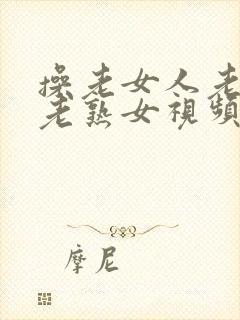 操老女人老
老熟女視頻
摩尼